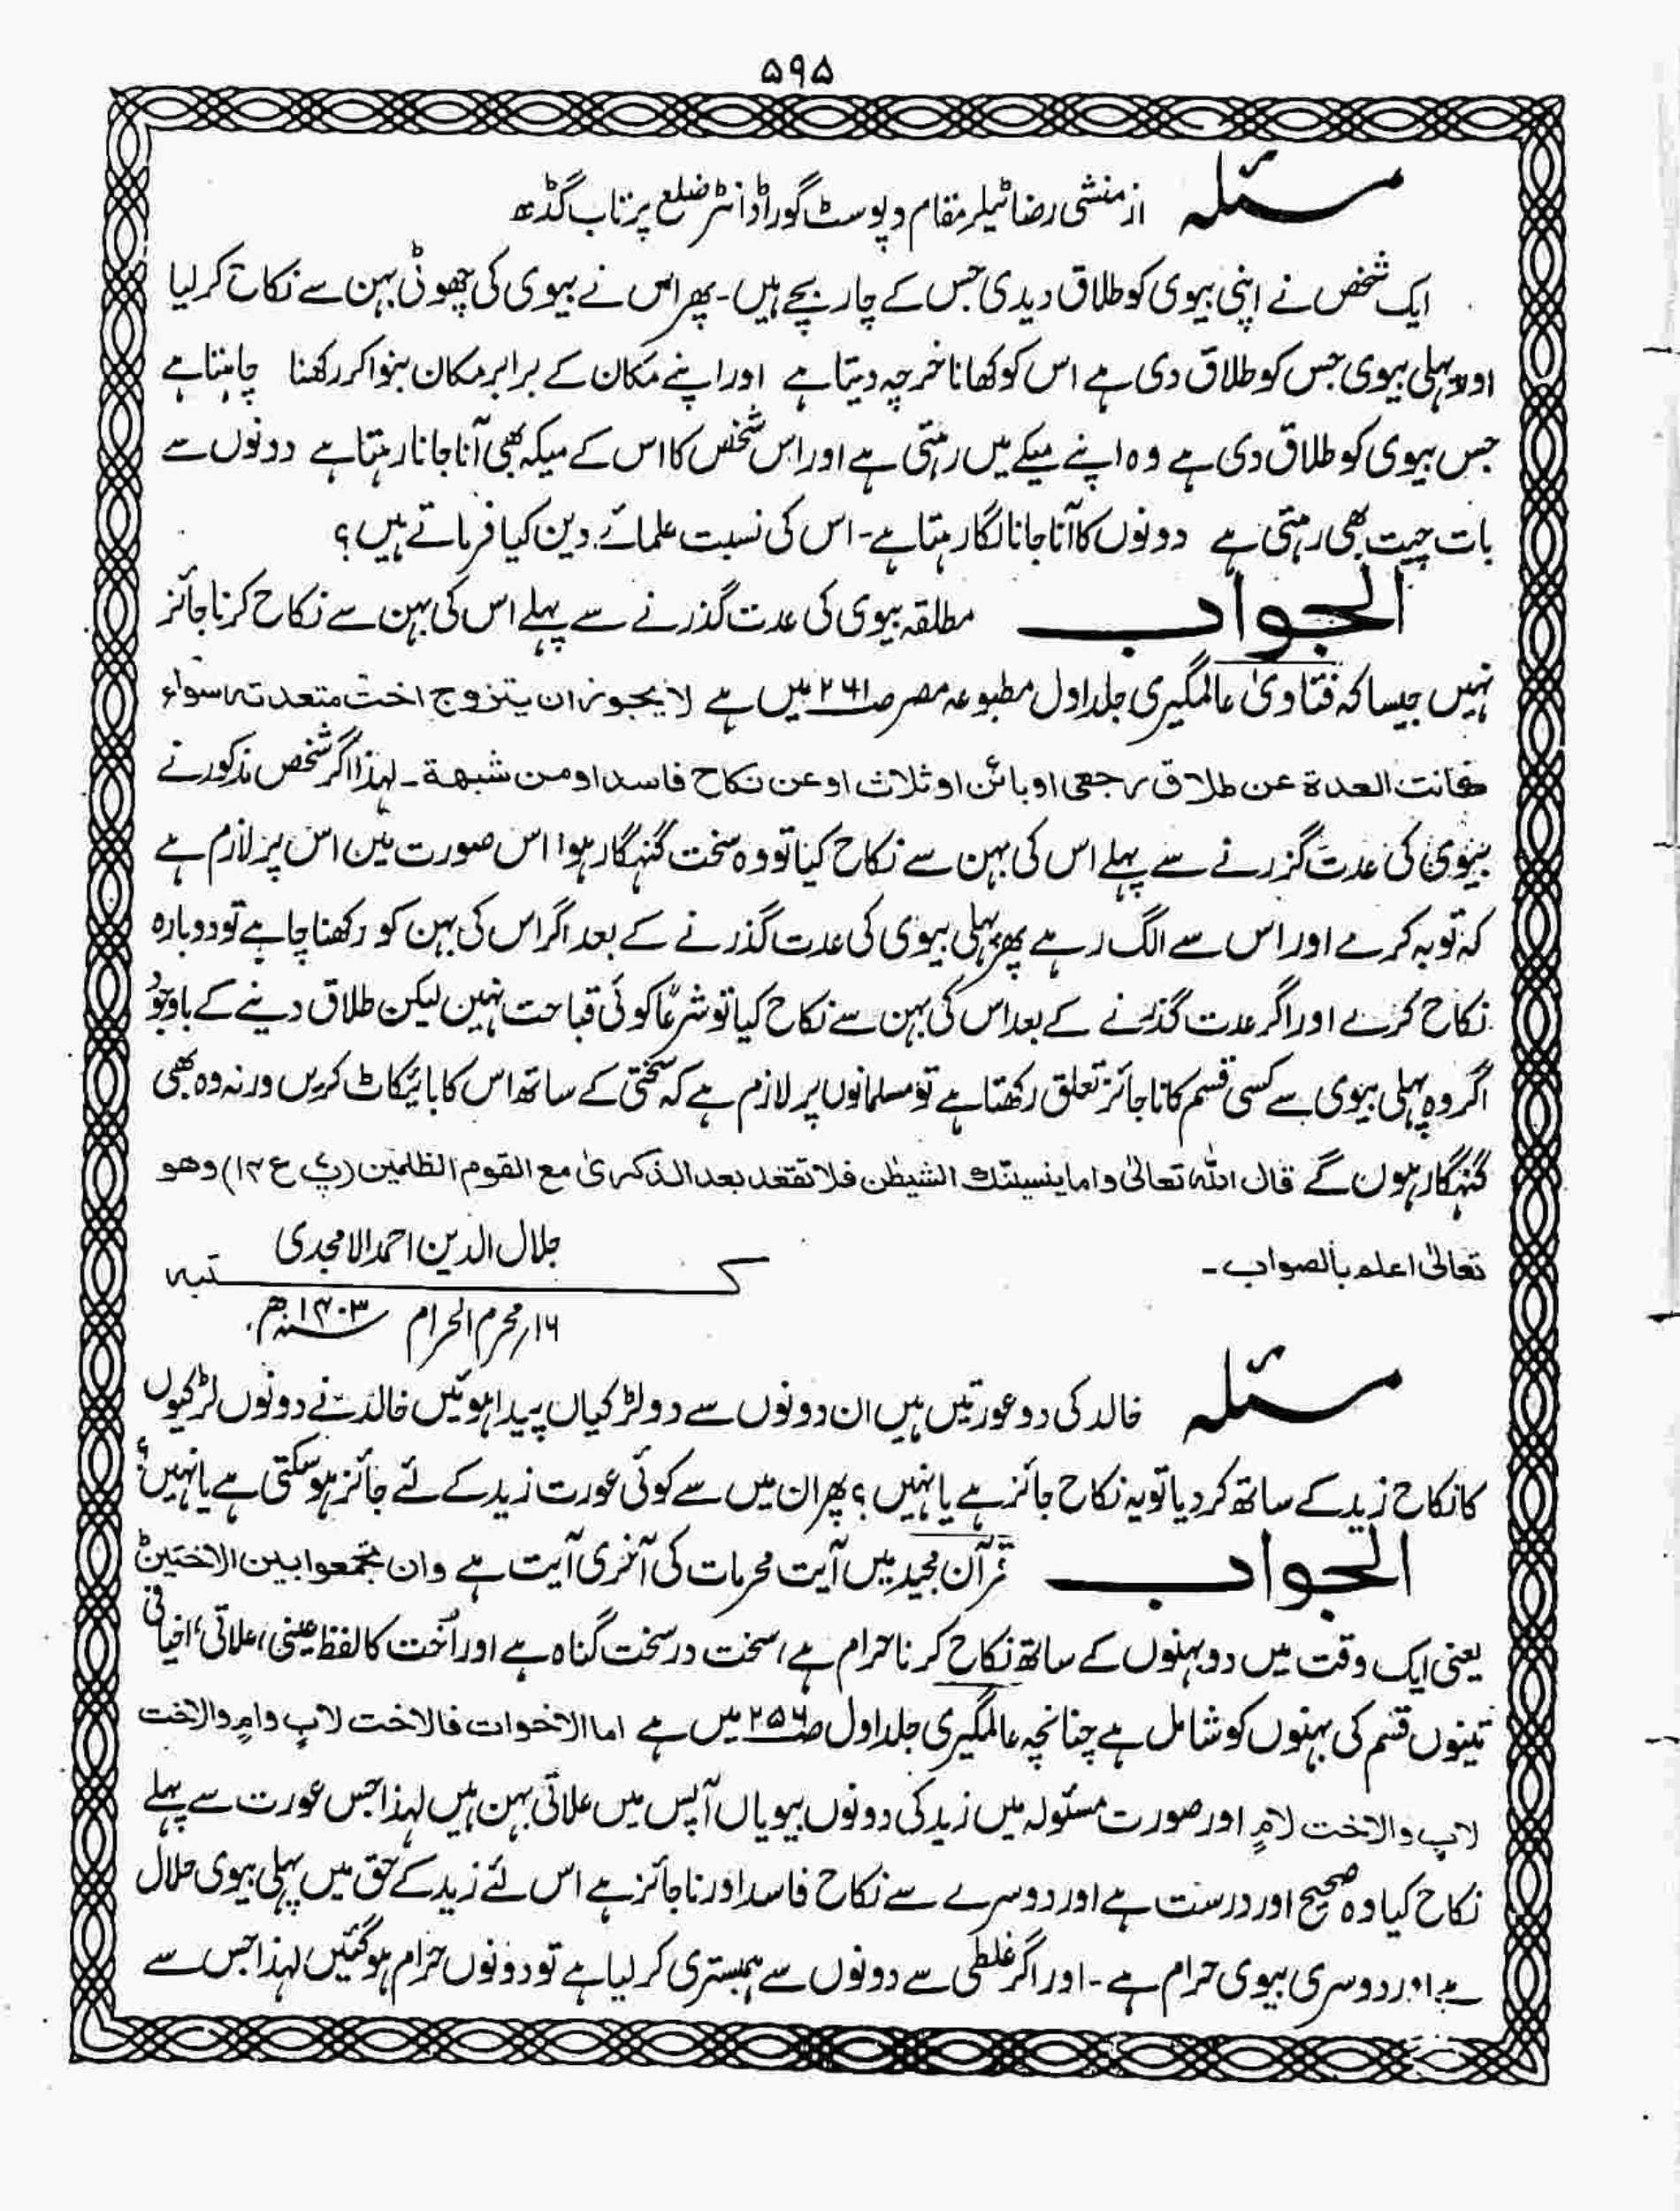 ۵۹۵
مسئلہ از منشی رضا ٹیلر مقام و پوسٹ گوراڈانٹر ضلع پرتاب گڈھ
ایک شخص نے اپنی بیوی کو طلاق دیدی جس کے چار بچے ہیں۔ پھر اس نے بیوی کی چھوٹی بہن سے نکاح کر لیا
اور پہلی بیوی جس کو طلاق دی ہے اس کو کھانا خرچہ دیتا ہے اور اپنے مکان کے برابر مکان بنوا کر رکھنا چاہتا ہے
جس بیوی کو طلاق دی ہے وہ اپنے میکے میں رہتی ہے اور اس شخص کا اس کے میکہ بھی آنا جانا رہتا ہے دونوں سے
بات چیت بھی رہتی ہے دونوں کا آنا جانا لگا رہتا ہے۔ اس کی نسبت علمائے دین کیا فرماتے ہیں؟
الجواب مطلقہ بیوی کی عدت گذرنے سے پہلے اس کی بہن سے نکاح کرنا جائز
نہیں جیسا کہ فتاویٰ عالمگیری جلد اول مطبوعہ مصر ص۲۶۱ میں ہے لا یجوز ان یتزوج اخت متعدتہ سواء
کانت العدة عن طلاق رجعی او بائن او ثلاث او عن نکاح فاسد او من شبھة۔ لہذا اگر شخص مذکور نے
بیوی کی عدت گزرنے سے پہلے اس کی بہن سے نکاح کیا تو وہ سخت گنہگار ہوا اس صورت میں اس پر لازم ہے
کہ توبہ کرے اور اس سے الگ رہے پھر پہلی بیوی کی عدت گذرنے کے بعد اگر اس کی بہن کو رکھنا چاہے تو دوبارہ
نکاح کرے اور اگر عدت گذرنے کے بعد اس کی بہن سے نکاح کیا تو شرعًا کوئی قباحت نہیں لیکن طلاق دینے کے باوجود
اگر وہ پہلی بیوی سے کسی قسم کا ناجائز تعلق رکھتا ہے تو مسلمانوں پر لازم ہے کہ سختی کے ساتھ اس کا بائیکاٹ کریں ورنہ وہ بھی
گنہگار ہوں گے قال اللہ تعالیٰ واما ینسینک الشیطٰن فلا تقعد بعد الذکریٰ مع القوم الظٰلمین (پ ع ۱۴) وھو
تعالیٰ اعلم بالصواب۔
جلال الدین احمد الامجدی
کتبہ
۱۶؍ محرم الحرام سنہ ۱۴۰۳ھ
مسئلہ خالد کی دو عورتیں ہیں ان دونوں سے دو لڑکیاں پیدا ہوئیں خالد نے دونوں لڑکیوں
کا نکاح زید کے ساتھ کر دیا تو یہ نکاح جائز ہے یا نہیں؟ پھر ان میں سے کوئی عورت زید کے لئے جائز ہو سکتی ہے یا نہیں؟
الجواب قرآن مجید میں آیت محرمات کی آخری آیت ہے وان تجمعوا بین الاختین
یعنی ایک وقت میں دو بہنوں کے ساتھ نکاح کرنا حرام ہے، سخت در سخت گناہ ہے اور اُخت کا لفظ عینی، علاتی، اخیافی
تینوں قسم کی بہنوں کو شامل ہے چنانچہ عالمگیری جلد اول ص۲۵۶ میں ہے اما الاخوات فالاخت لابٍ وامٍ والاخت
لابٍ والاخت لامٍ اور صورت مسئولہ میں زید کی دونوں بیویاں آپس میں علاتی بہن ہیں لہذا جس عورت سے پہلے
نکاح کیا وہ صحیح اور درست ہے اور دوسرے سے نکاح فاسد اور ناجائز ہے اس لئے زید کے حق میں پہلی بیوی حلال
ہے اور دوسری بیوی حرام ہے۔ اور اگر غلطی سے دونوں سے ہمبستری کر لیا ہے تو دونوں حرام ہو گئیں لہذا جس سے